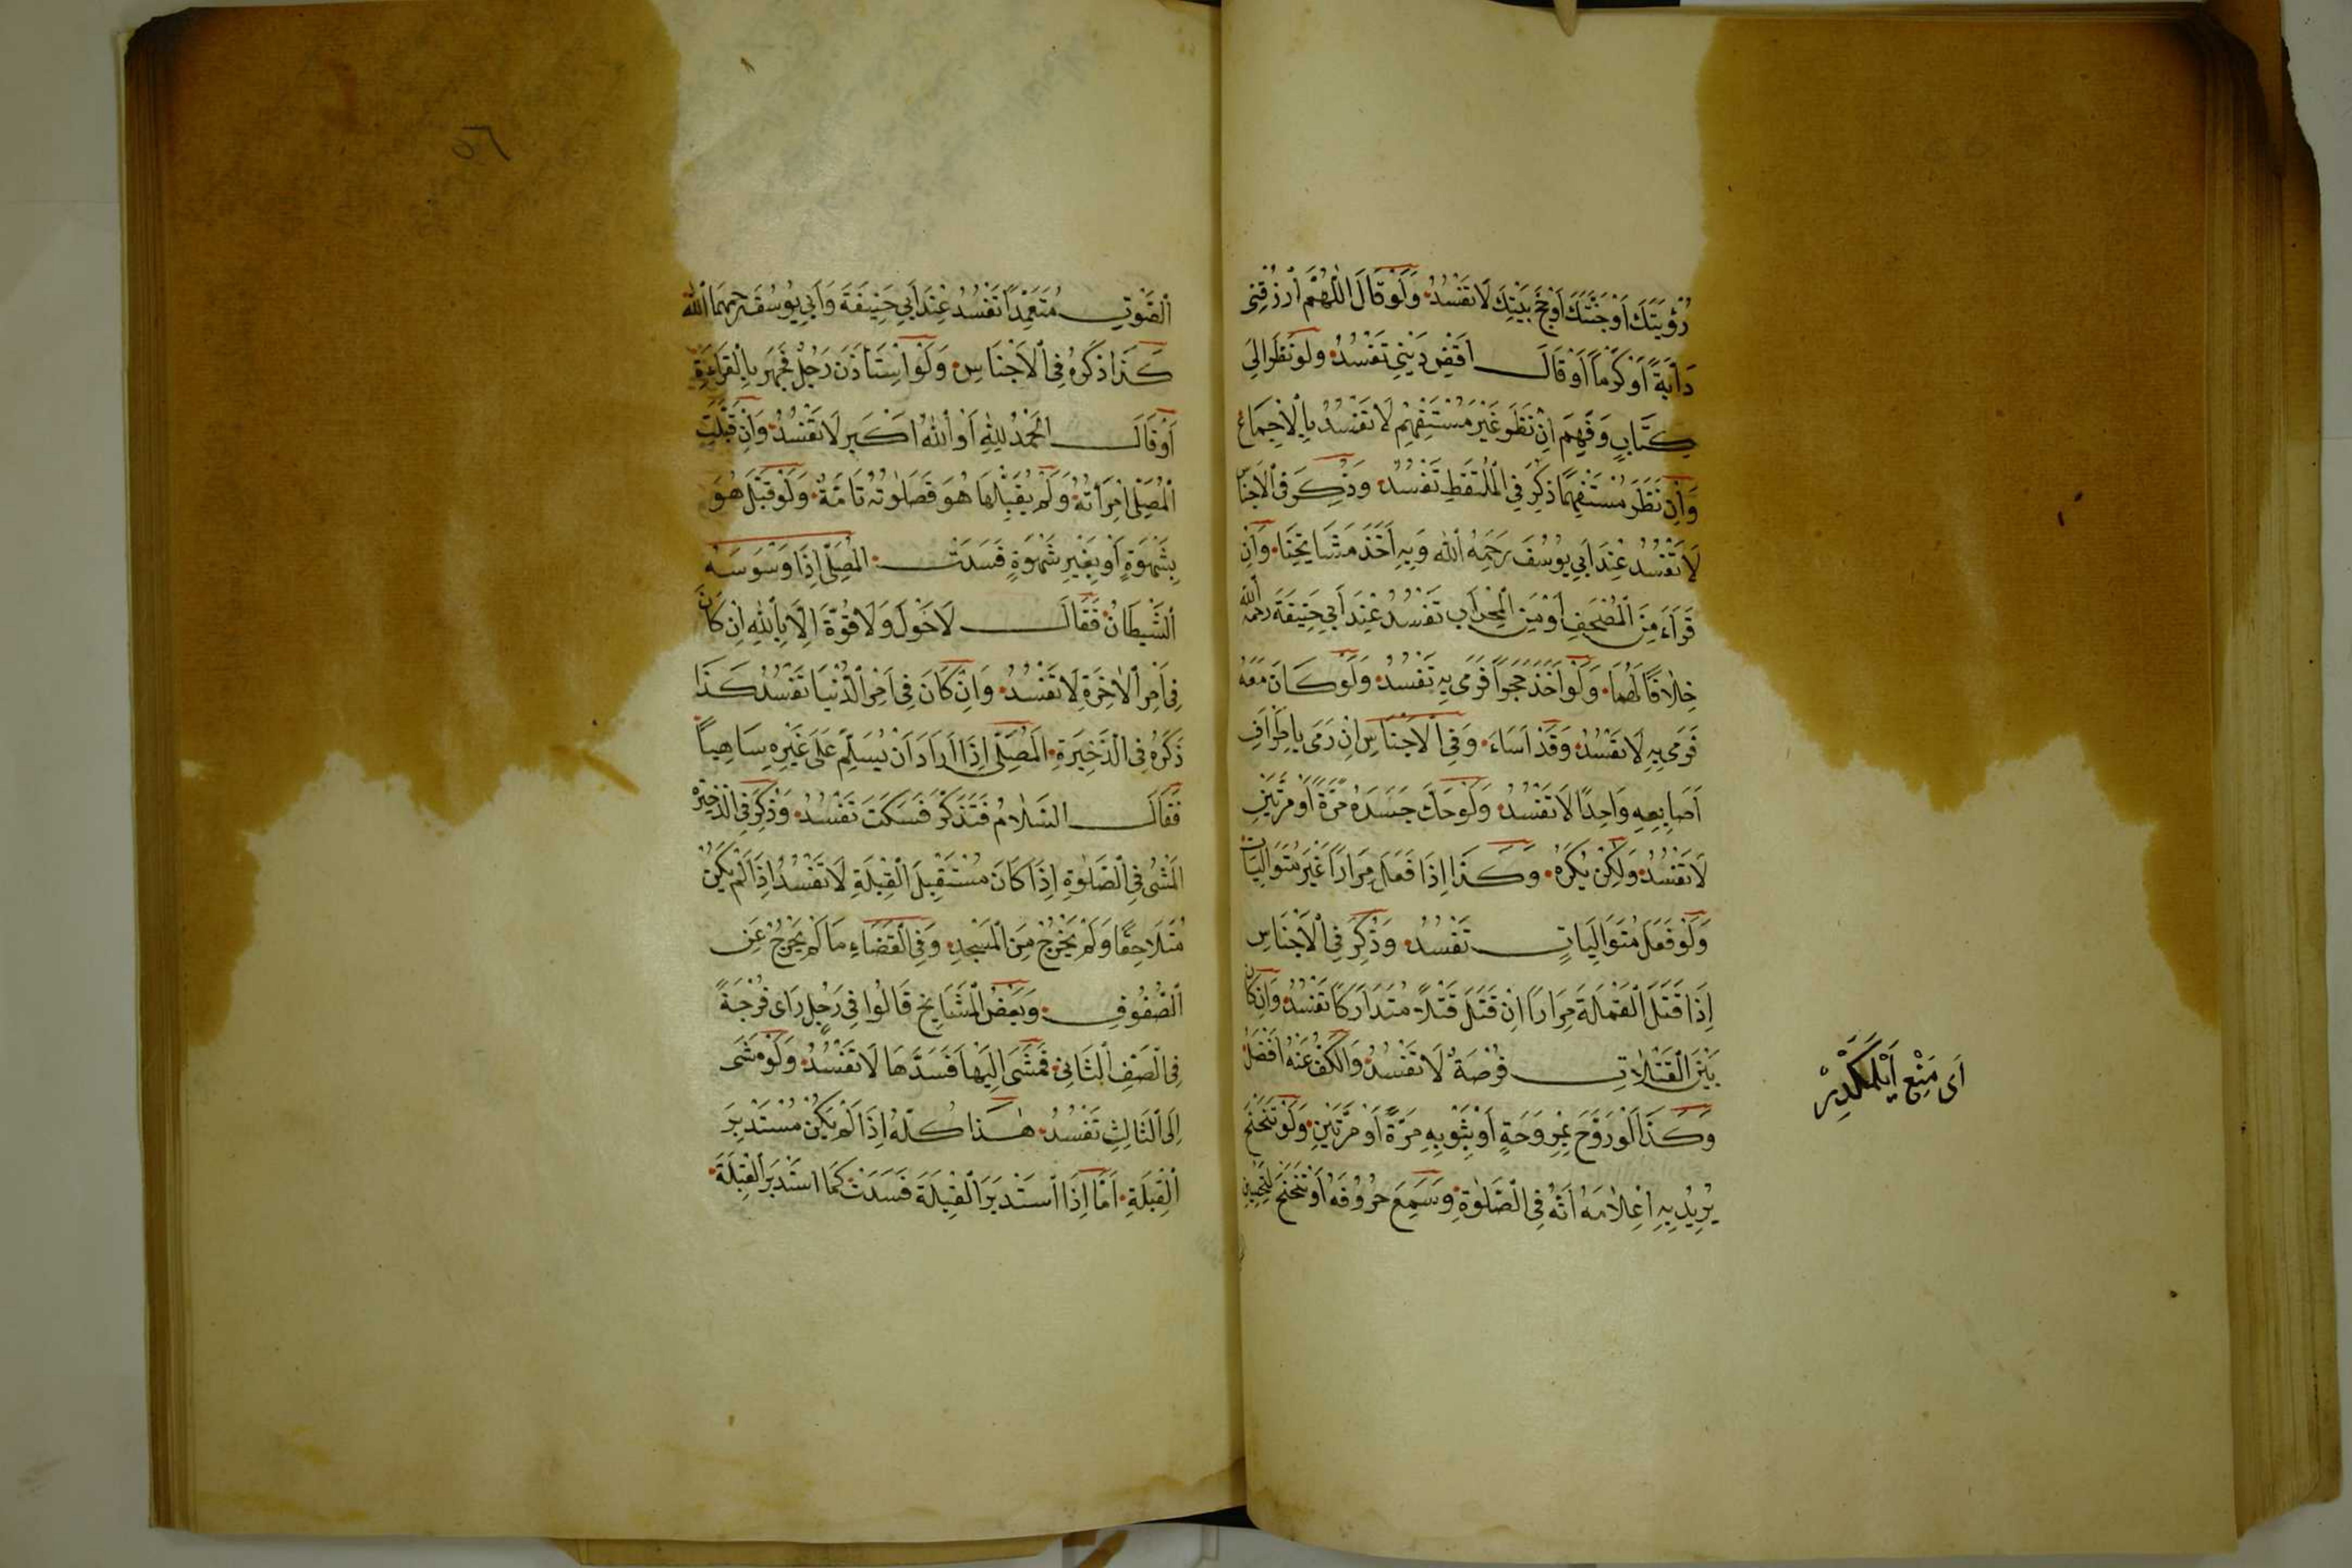 رُؤْيَتَكَ اَوْجَنَّتَكَ اَوْحَجَّ بَيْتِكَ لَا تَفْسُدُ وَلَوْ قَالَ اللّٰهُمَّ ارْزُقْنِى
دَابَّةً اَوْكَرْماً اَوْ قَالَ اَقْضِ دَيْنِى تَفْسُدُ ولو نَظَرَ اِلَى
كِتَابٍ وَفَهِمَ اِنْ نَظَرَ غَيْرَ مُسْتَفْهِمٍ لَا تَفْسُدُ بِالْاِجْمَاعِ
وَاِنْ نَظَرَ مُسْتَفْهِمًا ذُكِرَ فِى الْمُلْتَقَطِ تَفْسُدُ وَذُكِرَ فِى الْاَجْنَاسِ
لَا تَفْسُدُ عِنْدَ اَبِى يُوسُفَ رَحِمَهُ اللّٰه وَبِهِ اَخَذَ مَشَايِخُنَا وَاِنْ
قَرَاَءَ مِنَ الْمُصْحَفِ اَوْ مِنَ الْمِحْرَابِ تَفْسُدُ عِنْدَ اَبِى حَنِيفَةَ رحمه الله
خِلَافًا لَهُمَا وَلَوْ اَخَذَ حَجَراً فَرَمَى بِهِ تَفْسُدُ وَلَوْ كَانَ مَعَهُ
فَرَمَى بِهِ لَا تَفْسُدُ وَقَدْ اَسَاءَ وَفِى الْاَجْنَاسِ اِنْ رَمَى بِاَطْرَافِ
اَصَابِعِهِ وَاحِدًا لَا تَفْسُدُ وَلَوْ حَكَّ جَسَدَهُ مَرَّةً اَوْ مَرَّتَيْنِ
لَا تَفْسُدُ وَلَكِنْ يُكْرَهُ وَكَذَا اِذَا فَعَلَ مِرَاراً غَيْرَ مُتَوَالِيَات
وَلَوْ فَعَلَ مُتَوَالِيَاتٍ تَفْسُدُ وَذُكِرَ فِى الْاَجْنَاسِ
اِذَا قَتَلَ الْقَمْلَةَ مِرَاراً اِنْ قَتَلَ قَتْلاً مُتَدَارَكًا تَفْسُدُ وَاِنْ كَانَ
بَيْنَ الْقَتَلَاتِ فُرْصَةٌ لَا تَفْسُدُ وَالْكَفُّ عَنْهُ اَفْضَلُ
وَكَذَا لَوْ رَوَّحَ بِمِرْوَحَةٍ اَوْ بِثَوْبِهِ مَرَّةً اَوْ مَرَّتَيْنِ وَلَوْ تَنَحْنَحَ
يُرِيدُ بِهِ اِعْلَامَهُ اَنَّهُ فِى الصَّلٰوةِ وَسَمِعَ حُرُوفَهُ اَوْ تَنَحْنَحَ لِتَحْسِين
اَى مَنْع اَيْلَمَكْدِرْ
٥٦
الصَّوْتِ مُتَعَمِّداً تَفْسُدُ عِنْدَ اَبِى حَنِيفَةَ وَاَبِى يُوسُفَ رحمهما الله
كَذَا ذَكَرَهُ فِى الْاَجْنَاسِ وَلَوْ اسْتَأْذَنَ رَجُلٌ فَجَهَرَ بِالْقِرَاءَةِ
اَوْ قَالَ الْحَمْدُ لِلّٰهِ اَوْ اللّٰهُ اَكْبَر لَا تَفْسُدُ وَاِنْ قَبَّلَتِ
الْمُصَلِّى اِمْرَأَتُهُ وَلَمْ يُقَبِّلْهَا هُوَ فَصَلٰوتُهُ تَامَّةٌ وَلَوْ قَبَّلَ هُوَ
بِشَهْوَةٍ اَوْ بِغَيْرِ شَهْوَةٍ فَسَدَتْ الْمُصَلِّى اِذَا وَسْوَسَهُ
الشَّيْطَانُ فَقَالَ لَا حَوْلَ وَلَا قُوَّةَ اِلَّا بِاللّٰهِ اِنْ كَانَ
فِى اَمْرِ الْاٰخِرَةِ لَا تَفْسُدُ وَاِنْ كَانَ فِى اَمْرِ الدُّنْيَا تَفْسُدُ كَذَا
ذَكَرَهُ فِى الذَّخِيرَةِ الْمُصَلِّى اِذَا اَرَادَ اَنْ يُسَلِّمَ عَلَى غَيْرِهِ سَاهِياً
فَقَالَ السَّلَامُ فَتَذَكَّرَ فَسَكَتَ تَفْسُدُ وَذُكِرَ فِى الذَّخِيرَةِ
الْمَشْىُ فِى الصَّلٰوةِ اِذَا كَانَ مُسْتَقْبِلَ الْقِبْلَةِ لَا تَفْسُدُ اِذَا لَمْ يَكُنْ
مُتَلَاحِقًا وَلَمْ يَخْرُجْ مِنَ الْمَسْجِدِ وَفِى الْفَضَاءِ مَا لَمْ يَخْرُجْ عَنِ
الصُّفُوفِ وَبَعْضُ الْمَشَايِخِ قَالُوا فِى رَجُلٍ رَاَى فُرْجَةً
فِى الصَّفِّ الثَّانِى فَمَشَى اِلَيْهَا فَسَدَّهَا لَا تَفْسُدُ وَلَوْ مَشَى
اِلَى الثَّالِثِ تَفْسُدُ هٰذَا كُلُّهُ اِذَا لَمْ يَكُنْ مُسْتَدْبِرَ
الْقِبْلَةِ اَمَّا اِذَا اسْتَدْبَرَ الْقِبْلَةَ فَسَدَتْ كَمَا اسْتَدْبَرَ الْقِبْلَةَ